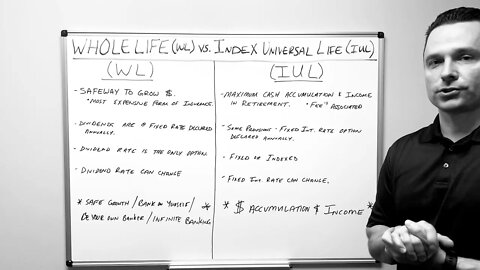 WHOLE LIFE (WL) VS. INDEX UNIVERSAL LIFE (IUL)
(WL)
- SAFEWAY TO GROW $.
*MOST EXPENSIVE FORM OF INSURANCE.
- DIVIDENDS ARE A FIXED RATE DECLARED
ANNUALLY.
- DIVIDEND RATE IS THE ONLY OPTION.
- DIVIDEND RATE CAN CHANGE
* SAFE GROWTH / BANK ON YOURSELF / *
BE YOUR OWN BANKER / INFINITE BANKING
(IUL)
- MAXIMUM CASH ACCUMULATION & INCOME
IN RETIREMENT. * FEES ASSOCIATED
- SOME PROVISIONS - FIXED INT. RATE OPTION
DECLARED ANNUALLY.
- FIXED OR INDEXED
- FIXED INT. RATE CAN CHANGE.
* $ ACCUMULATION & INCOME *